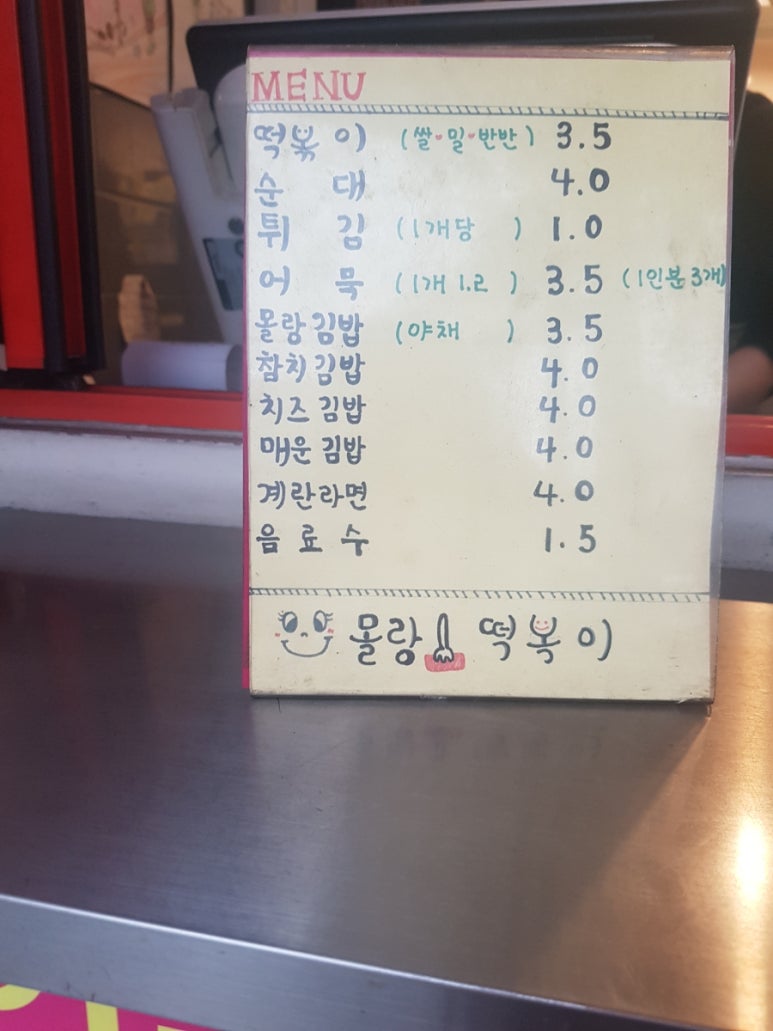 MENU
떡볶이 (쌀·밀·반반) 3.5
순대 4.0
튀김 (1개당) 1.0
어묵 (1개 1.2) 3.5 (1인분 3개)
몰랑김밥 (야채) 3.5
참치김밥 4.0
치즈김밥 4.0
매운김밥 4.0
계란라면 4.0
음료수 1.5
몰랑 떡볶이